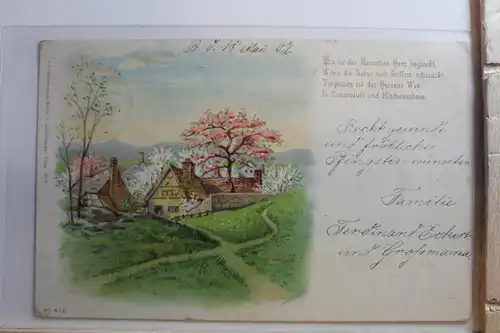 B. d. 18 Mai 02.
Wie ist des Menschen Herz beglückt,
Wenn die Natur sich festlich schmückt
Vergessen ist des Herzens Weh
In Lenzesduft und Blüthenschnee.
Recht gesunde
und fröhliche
Pfingsten wünschen
Familie
Ferdinand Eckert
und Großmama